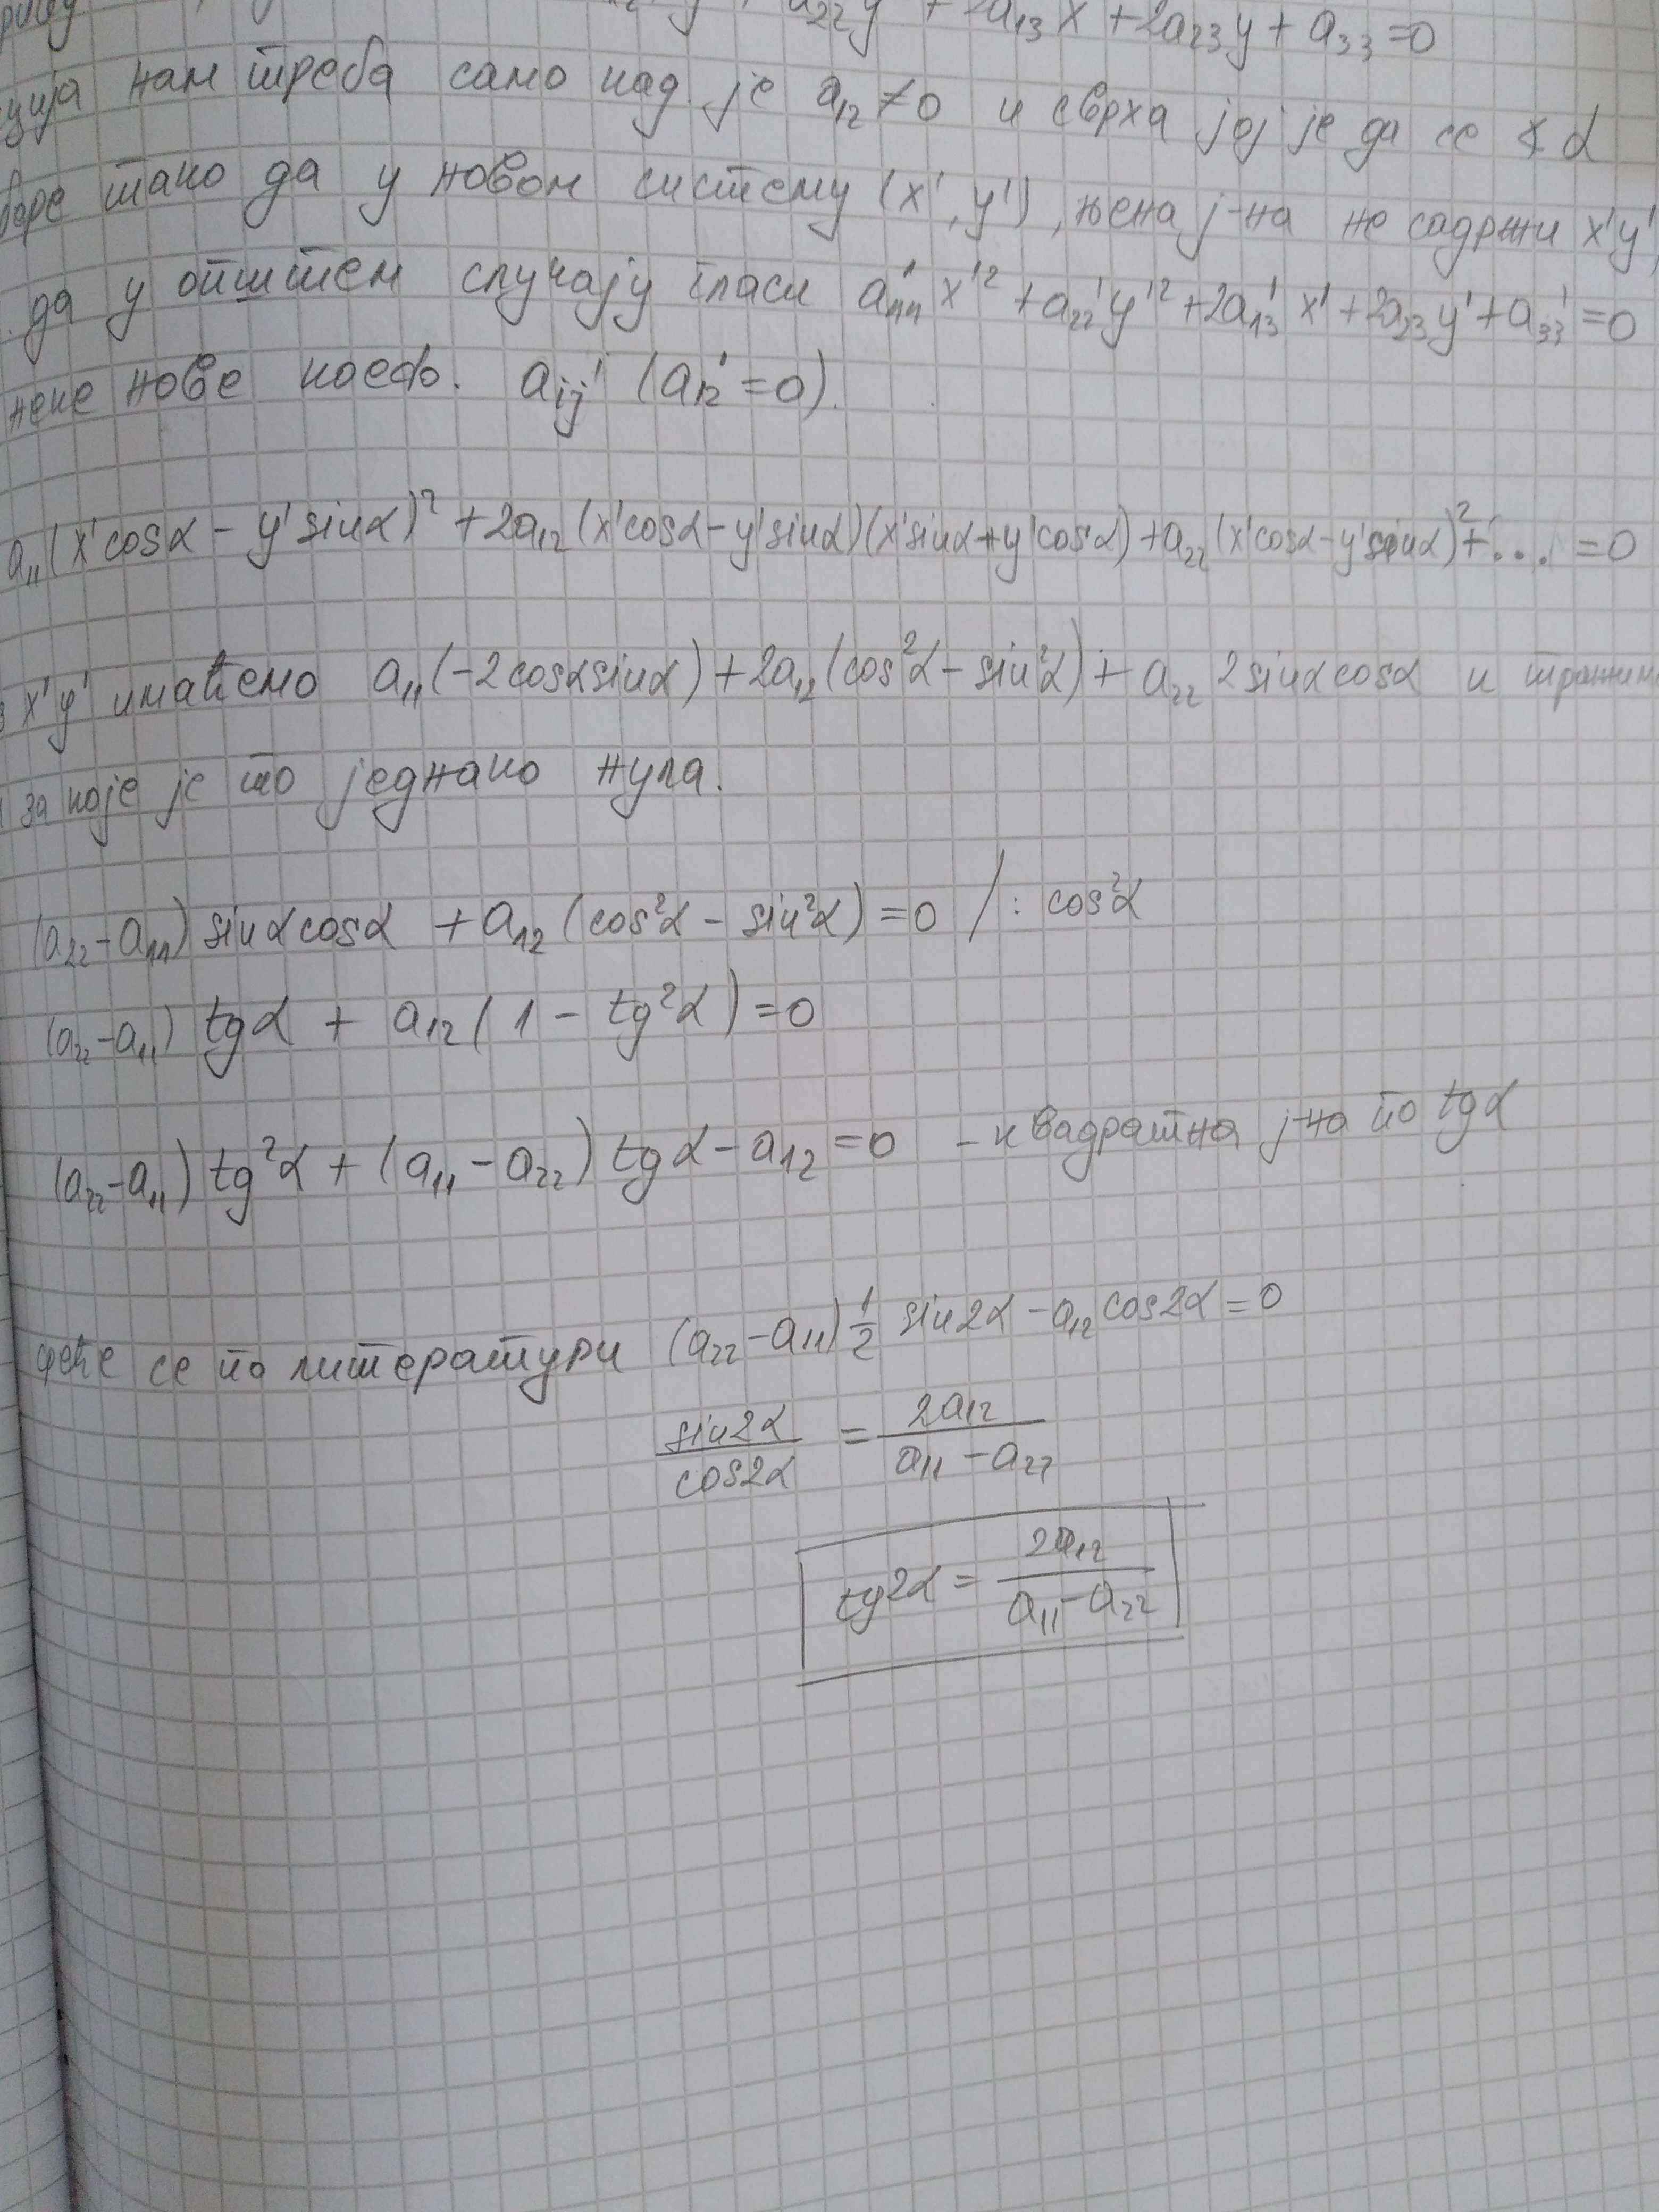 a₂₂y + 2a₁₃x + 2a₂₃y + a₃₃ = 0
ција нам треба само кад је a₁₂ ≠ 0 и сврха јој је да се ∢ α
тако да у новом систему (x', y'), њена ј-на не садржи x'y'
да у општем случају гласи a₁₁' x'² + a₂₂' y'² + 2a₁₃' x' + 2a₂₃ y' + a₃₃' = 0
неке нове коеф. aᵢⱼ' (a₁₂' = 0).
a₁₁(x'cosα − y'sinα)² + 2a₁₂(x'cosα − y'sinα)(x'sinα + y'cosα) + a₂₂(x'cosα − y'sinα)² + ... = 0
x'y' имаћемо a₁₁(−2cosαsinα) + 2a₁₂(cos²α − sin²α) + a₂₂ 2sinαcosα и тражим
за које је то једнако нула.
(a₂₂ − a₁₁) sinαcosα + a₁₂(cos²α − sin²α) = 0 /: cos²α
(a₂₂ − a₁₁) tgα + a₁₂(1 − tg²α) = 0
(a₂₂ − a₁₁) tg²α + (a₁₁ − a₂₂) tgα − a₁₂ = 0 – квадратна ј-на по tgα
се по литератури (a₂₂ − a₁₁) ½ sin2α − a₁₂ cos2α = 0
sin2α/cos2α = 2a₁₂/(a₁₁ − a₂₂)
tg2α = 2a₁₂/(a₁₁ − a₂₂)